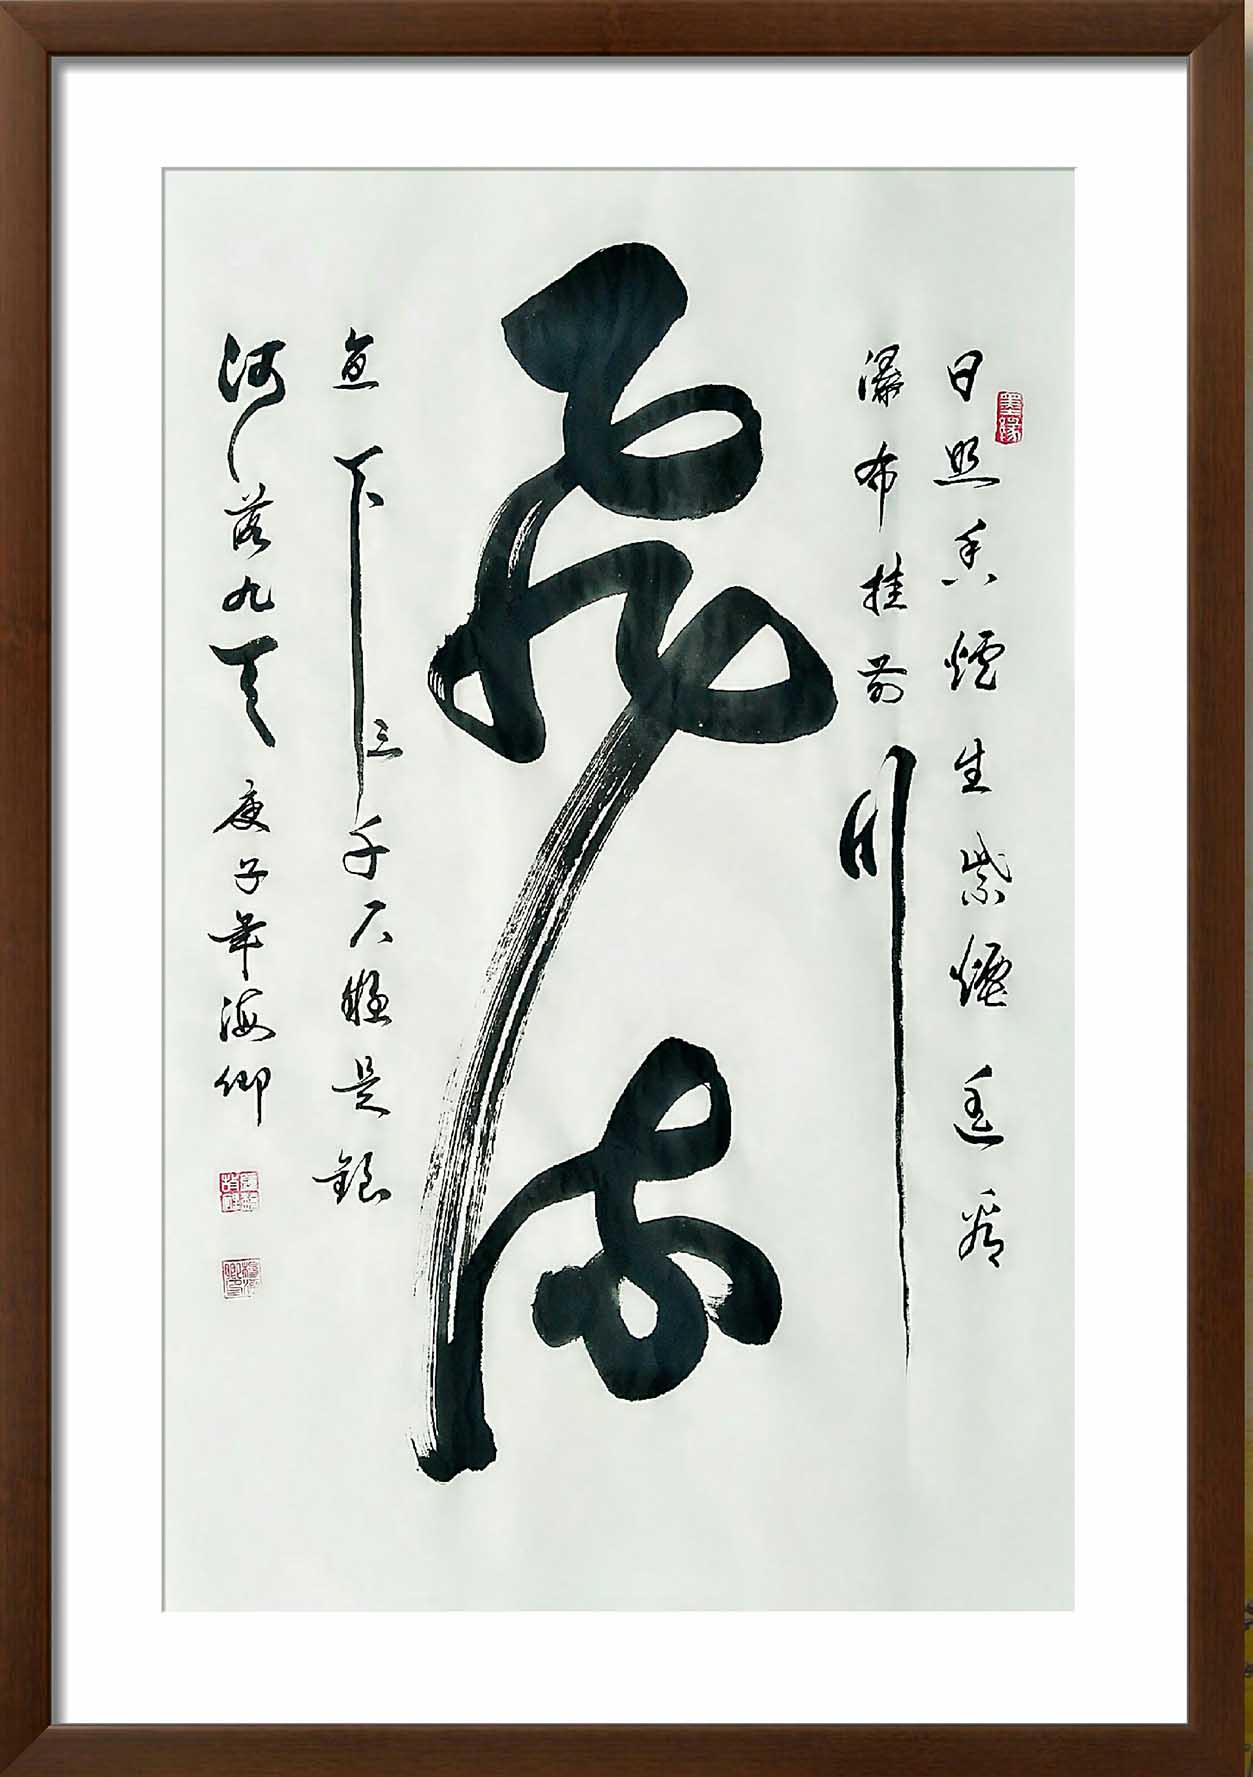 墨緣
日照香爐生紫煙遙看
瀑布挂前川
飛流
直下三千尺疑是銀
河落九天 庚子年海卿